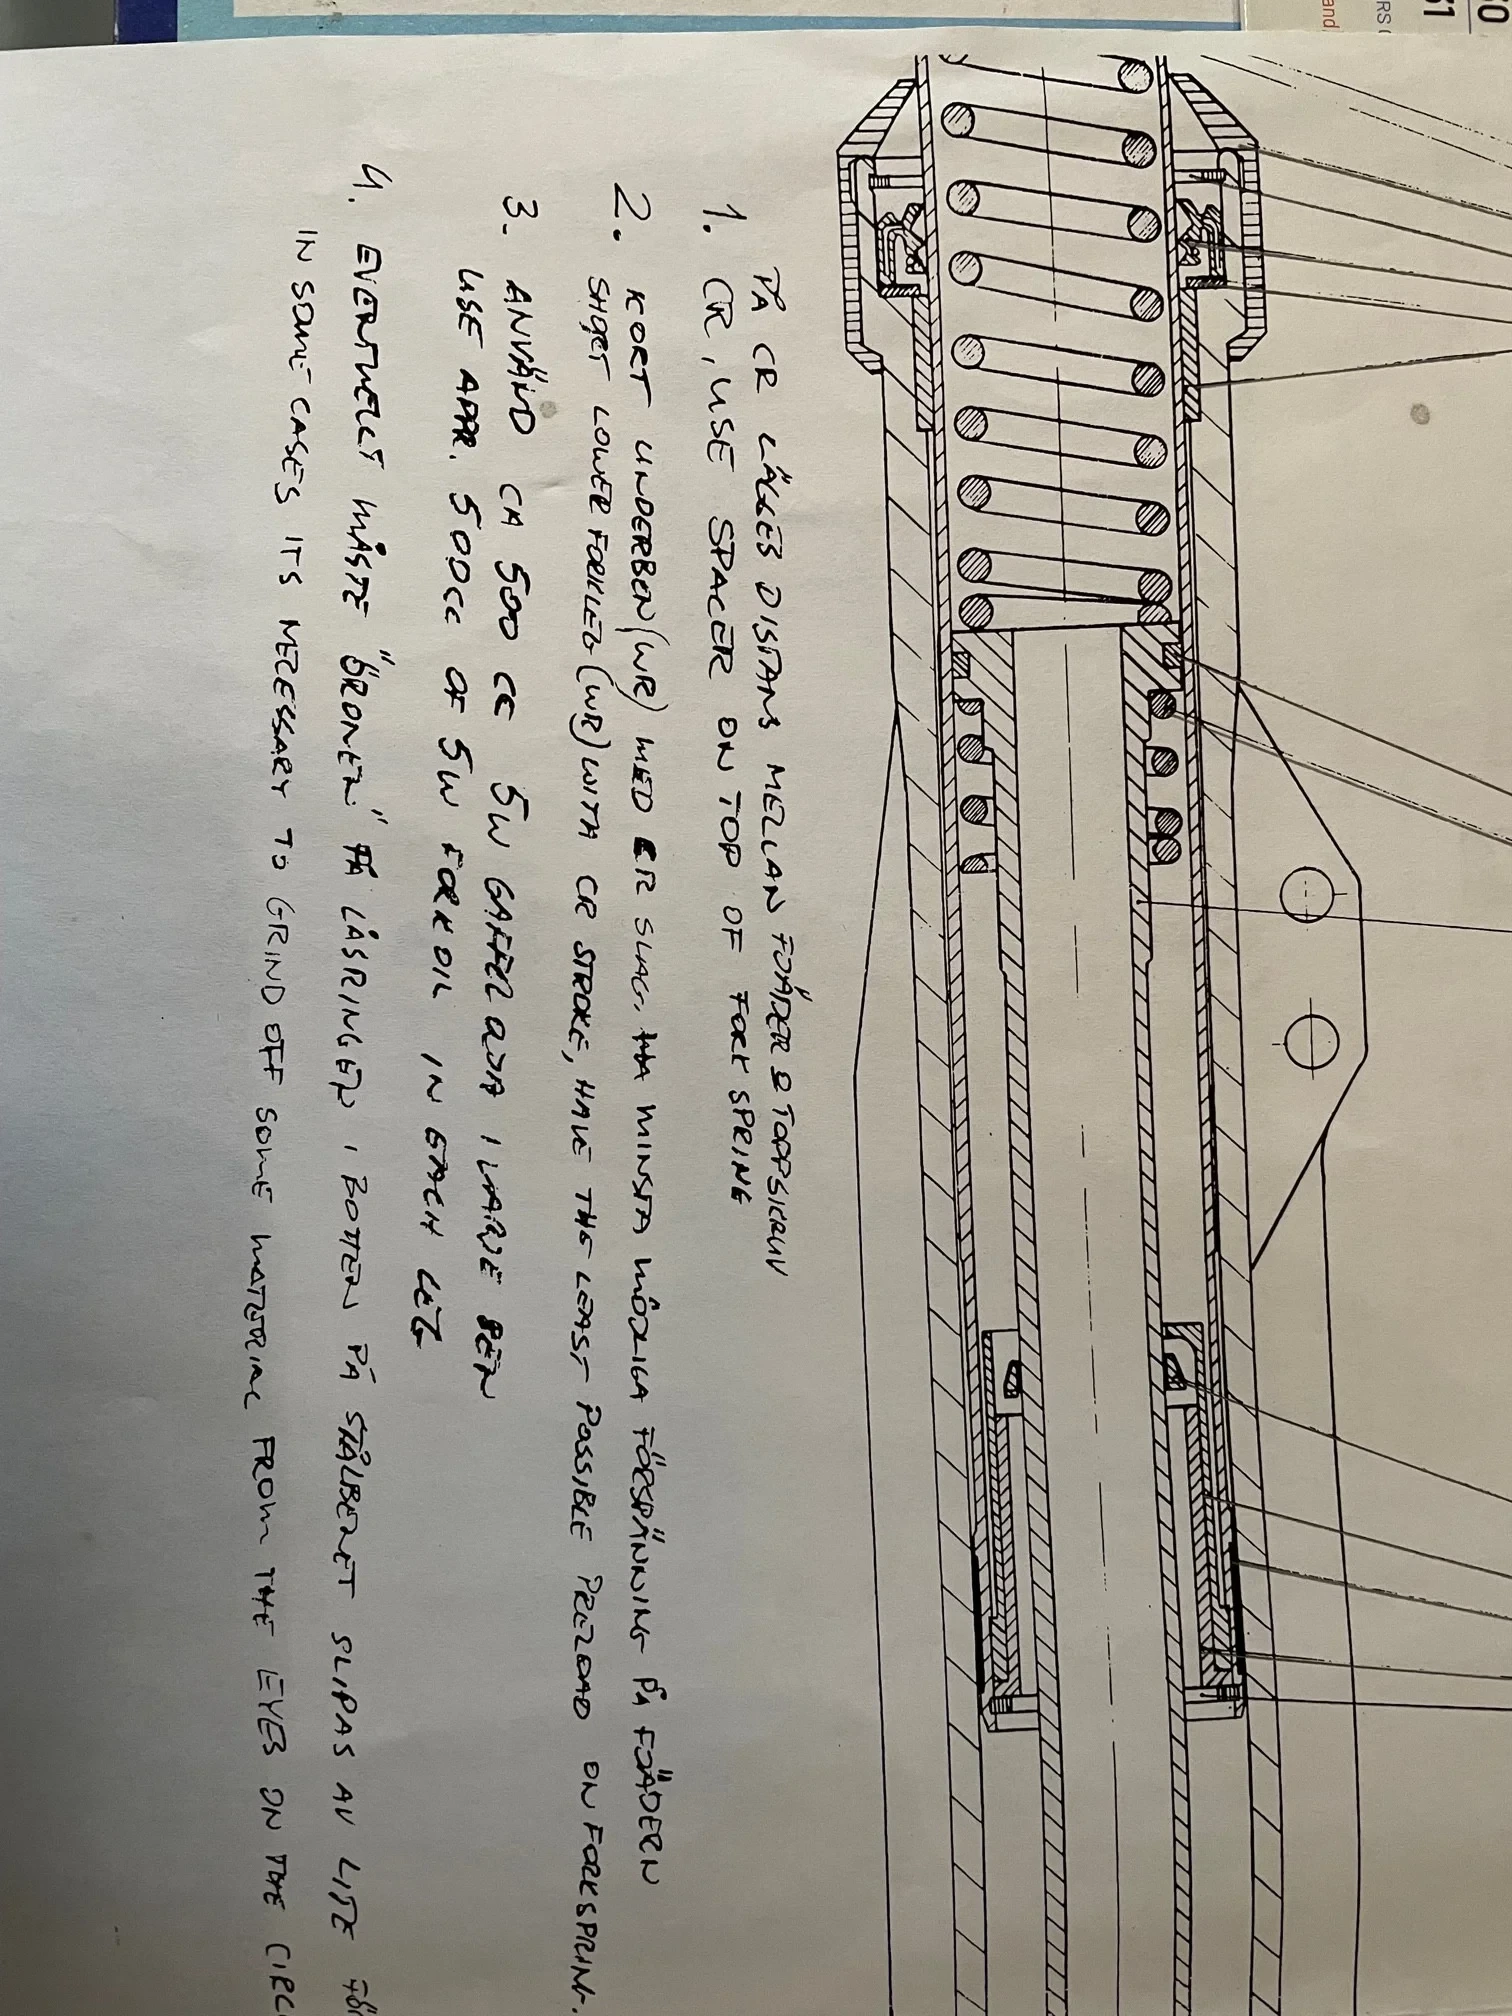 PÅ CR LÄGGES DISTANS MELLAN FJÄDER & TOPPSKRUV
1. CR, USE SPACER ON TOP OF FORKSPRING
2. KORT UNDERBEN (WR) MED CR SLAG, HA MINSTA MÖJLIGA FÖRSPÄNNING PÅ FJÄDERN
SHORT LOWER FORKLEG (WR) WITH CR STROKE, HAVE THE LEAST POSSIBLE PRELOAD ON FORKSPRING.
3. ANVÄND CA 500 CC 5W GAFFELOLJA I VARJE BEN
USE APPR. 500CC OF 5W FORKOIL IN EACH LEG
4. EVENTUELLT MÅSTE "ÖRONEN" PÅ LÅSRINGEN I BOTTEN PÅ STÅLBENET SLIPAS AV LITE FÖR
IN SOME CASES ITS NECESSARY TO GRIND OFF SOME MATERIAL FROM THE EYES ON THE CIRC
60
61
RS
and